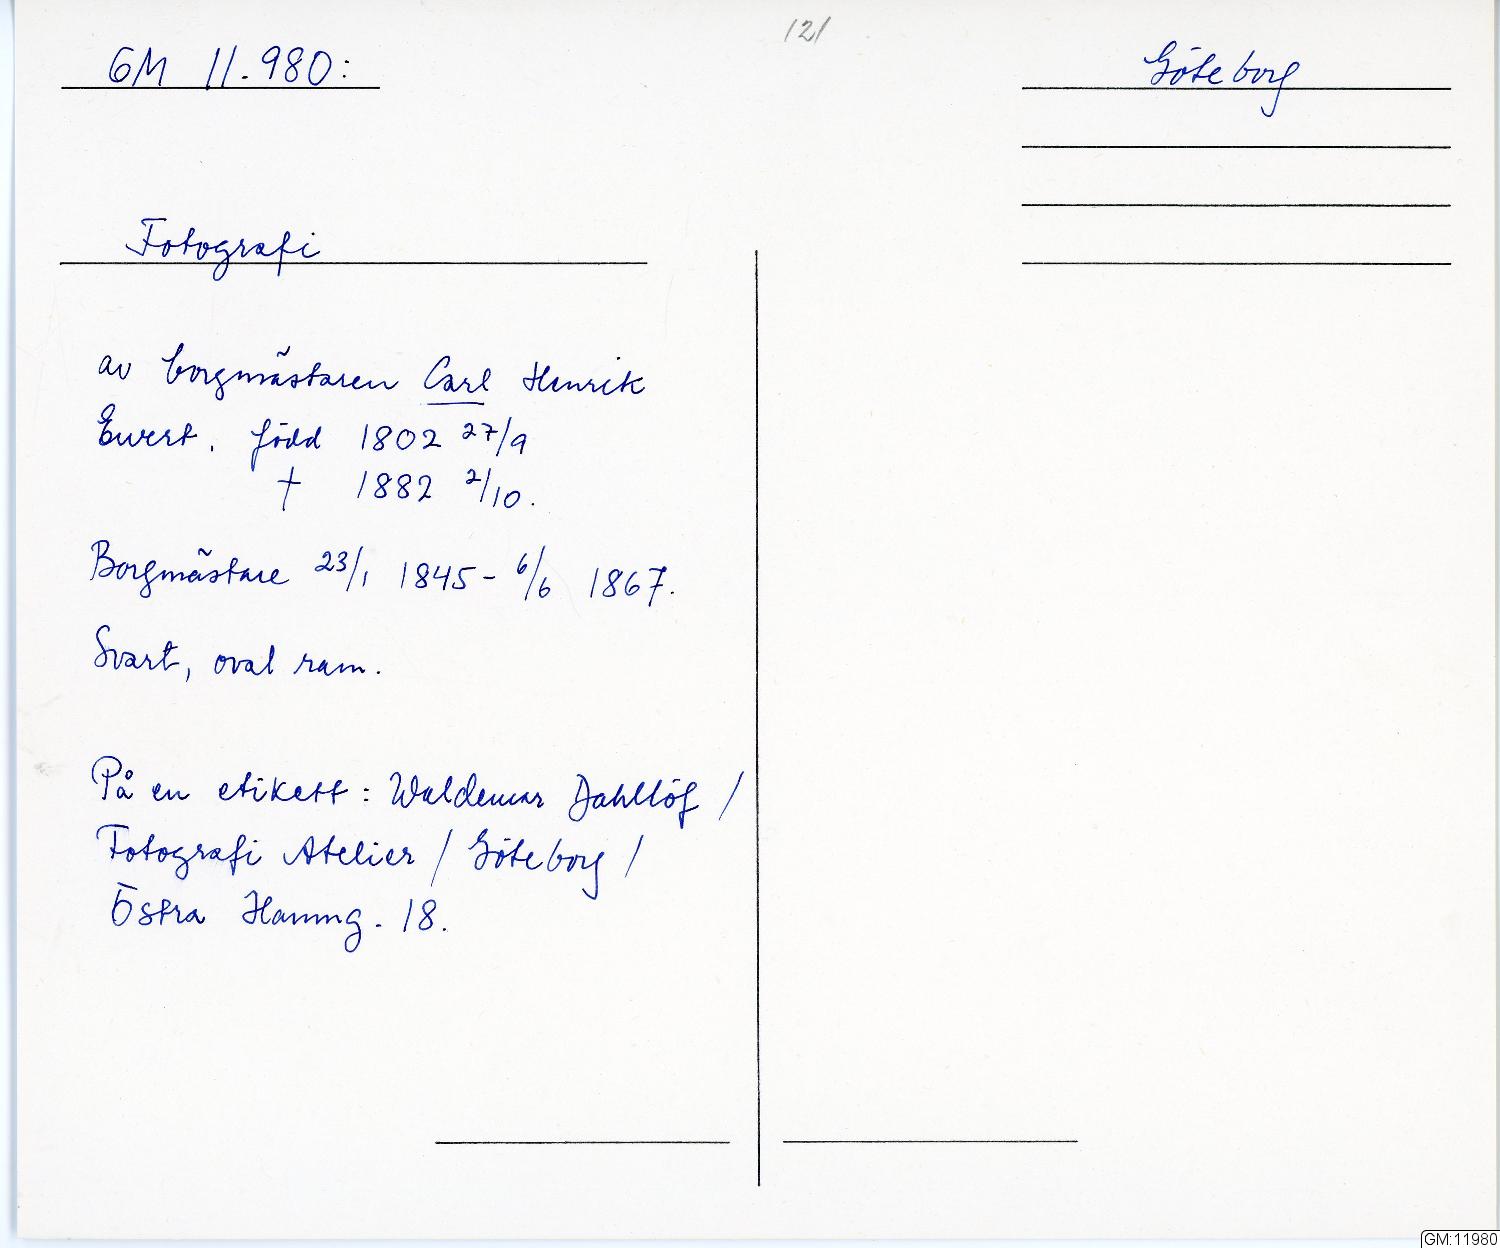 121
GM 11.980:
Göteborg
Fotografi
av borgmästaren Carl Henrik
Ewert. född 1802 27/9
† 1882 2/10.
Borgmästare 23/1 1845 - 6/6 1867.
Svart, oval ram.
På en etikett: Waldemar Dahllöf /
Fotografi Atelier / Göteborg /
Östra Hamng. 18.
GM:11980